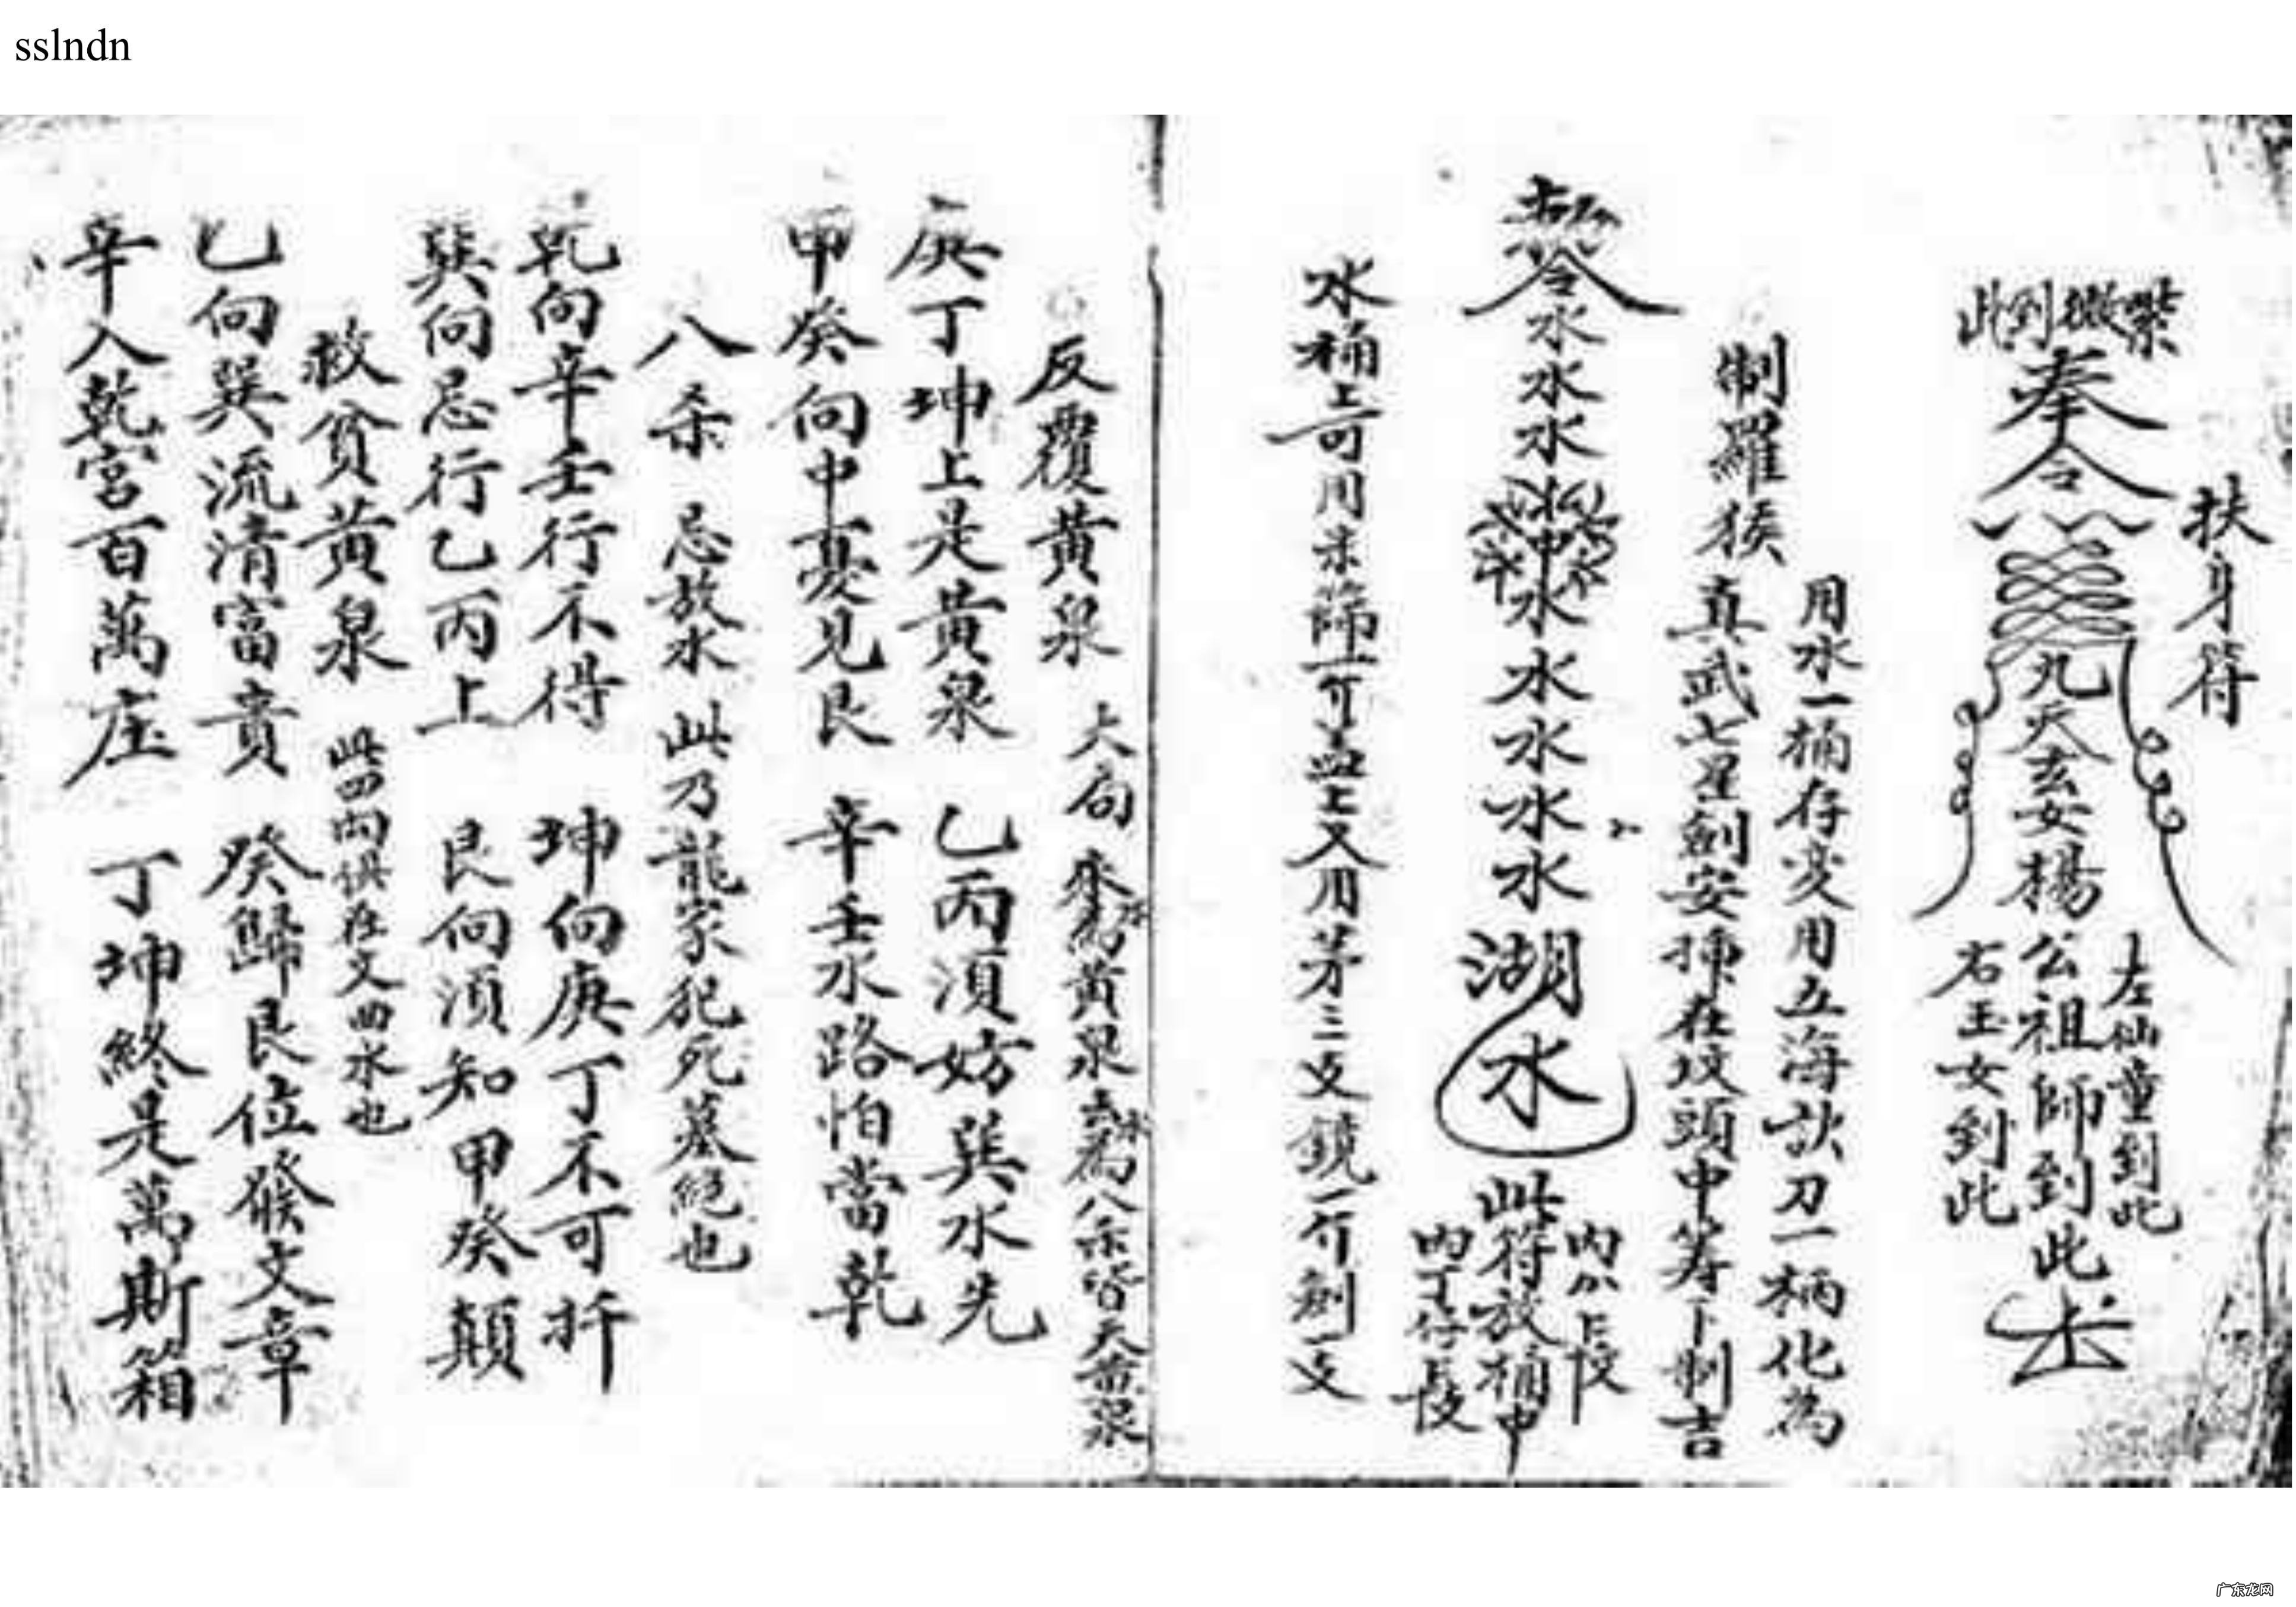 sslndn
扶身符
紫微到此
奉令
九天玄女楊公祖師到此
左仙童到此
右玉女到此
用水一桶存变用五海訣刀一柄化為
制羅猴
真武七星劍安插在坟頭申寿下制吉
令水水水
水水水水水
湖水
此符放桶中
內外長段
內丁仔長段
水桶上可用
師一介盖上又用茅三支鏡一介劍一支
反覆黄泉
大局
來水為黄泉去水為八杀皆大黄泉
庚丁坤上是黄泉 乙丙須妨巽水先
甲癸向中憂見艮 辛壬水路怕當乾
八杀 忌放水 此乃龍家犯死墓絕也
乾向辛壬行不得 坤向庚丁不可扦
巽向忌行乙丙上 艮向須知甲癸顛
救貧黄泉 此四向俱在文曲水也
乙向巽流清富貴 癸歸艮位發文章
辛入乾宮百萬庄 丁坤終是萬斯箱
广东龙网